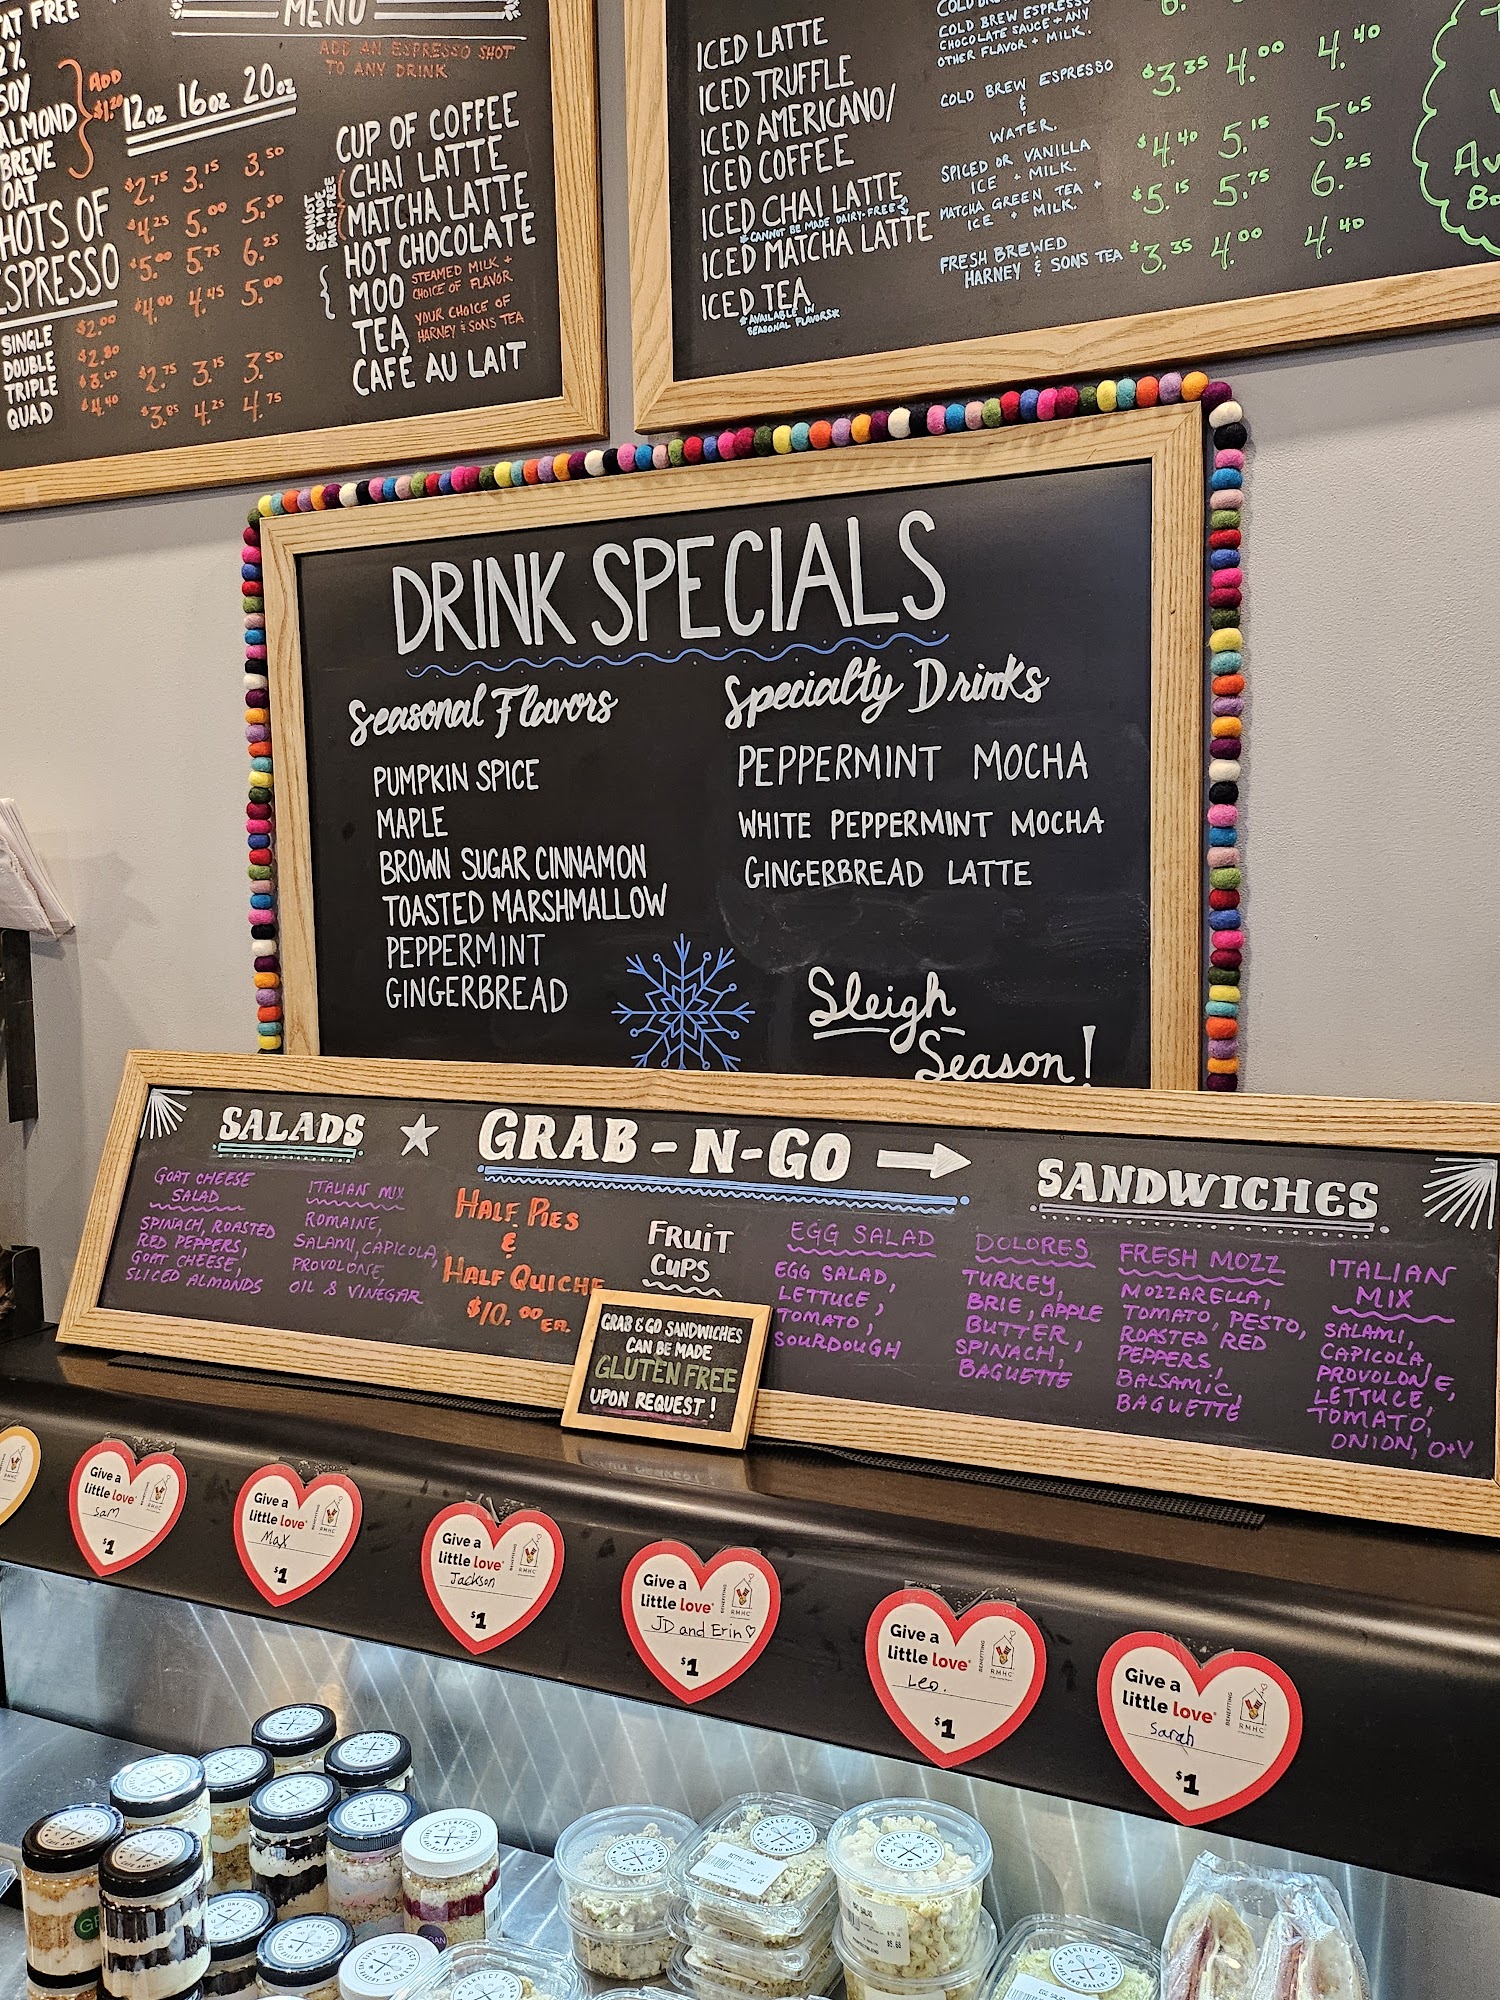 MENU
FAT FREE
2%
SOY
ALMOND
BREVE
OAT
ADD
$1.20
SHOTS OF
ESPRESSO
SINGLE $2.00
DOUBLE $2.80
TRIPLE $3.60
QUAD $4.40
ADD AN ESPRESSO SHOT
TO ANY DRINK
12oz 16oz 20oz
$2.75 3.15 3.50
$4.25 5.00 5.50
$5.00 5.75 6.25
$4.00 4.45 5.00
$2.75 3.15 3.50
$3.85 4.25 4.75
CUP OF COFFEE
CHAI LATTE
MATCHA LATTE
CANNOT
BE MADE
DAIRY-FREE
HOT CHOCOLATE
MOO STEAMED MILK +
CHOICE OF FLAVOR
TEA YOUR CHOICE OF
HARNEY & SONS TEA
CAFÉ AU LAIT
ICED LATTE
ICED TRUFFLE
ICED AMERICANO/
ICED COFFEE
ICED CHAI LATTE
*CANNOT BE MADE DAIRY-FREE
ICED MATCHA LATTE
ICED TEA
*AVAILABLE IN
SEASONAL FLAVORS*
COLD BREW ESPRESSO
CHOCOLATE SAUCE + ANY
OTHER FLAVOR + MILK.
COLD BREW ESPRESSO
&
WATER.
SPICED OR VANILLA
ICE + MILK.
MATCHA GREEN TEA +
ICE + MILK.
FRESH BREWED
HARNEY & SONS TEA
$3.35 4.00 4.40
$4.40 5.15 5.65
$5.15 5.75 6.25
$3.35 4.00 4.40
DRINK SPECIALS
Seasonal Flavors
PUMPKIN SPICE
MAPLE
BROWN SUGAR CINNAMON
TOASTED MARSHMALLOW
PEPPERMINT
GINGERBREAD
Specialty Drinks
PEPPERMINT MOCHA
WHITE PEPPERMINT MOCHA
GINGERBREAD LATTE
Sleigh
Season!
SALADS GRAB-N-GO SANDWICHES
GOAT CHEESE
SALAD
SPINACH, ROASTED
RED PEPPERS,
GOAT CHEESE,
SLICED ALMONDS
ITALIAN MIX
ROMAINE,
SALAMI, CAPICOLA,
PROVOLONE,
OIL & VINEGAR
HALF PIES
&
HALF QUICHE
$10.00 EA.
FRUIT
CUPS
EGG SALAD
EGG SALAD,
LETTUCE,
TOMATO,
SOURDOUGH
DOLORES
TURKEY,
BRIE, APPLE
BUTTER,
SPINACH,
BAGUETTE
FRESH MOZZ
MOZZARELLA,
TOMATO, PESTO,
ROASTED RED
PEPPERS,
BALSAMIC,
BAGUETTE
ITALIAN
MIX
SALAMI,
CAPICOLA,
PROVOLONE,
LETTUCE,
TOMATO,
ONION, O+V
GRAB & GO SANDWICHES
CAN BE MADE
GLUTEN FREE
UPON REQUEST!
Give a
little love
Sam
$1
BENEFITING
RMHC
Give a
little love
Max
$1
BENEFITING
RMHC
Give a
little love
Jackson
$1
BENEFITING
RMHC
Give a
little love
JD and Erin♡
$1
BENEFITING
RMHC
Give a
little love
Leo.
$1
BENEFITING
RMHC
Give a
little love
Sarah
$1
BENEFITING
RMHC
PERFECT BLEND
CAFE AND BAKERY
EGG SALAD
$5.68
EGG SALAD